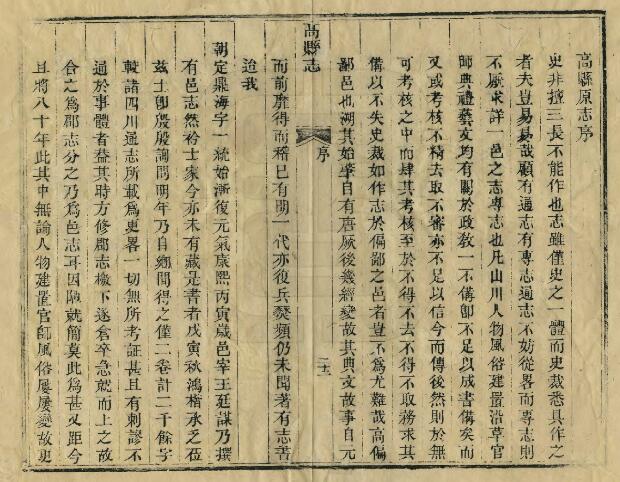 高縣原志序
史非擅三長不能作也志雖僅史之一體而史裁悉具作之
者夫豈易易哉顧有通志有專志通志不妨從畧而專志則
不厭求詳一邑之志專志也凡山川人物風俗建置沿革官
師典禮藝文均有關於政教一不備卽不足以成書備矣而
又或考核不精去取不審亦不足以信今而傳後然則於無
可考核之中而肆其考核至於不得不去不得不取務求其
備以不失史裁如作志於偏鄙之邑者豈不爲尤難哉高偏
鄙邑也溯其始肇自有唐厥後幾經變故其典文故事自元
高縣志
序
二十二
而前靡得而稽已有明一代亦復兵燹頻仍未聞著有志書
迨我
朝定鼎海宇一統始漸復元氣康熙丙寅歲邑宰王廷謀乃撰
有邑志然衿士家今亦未有藏是書者戊寅秋鴻楷承乏莅
兹土卽殷殷詢問明年乃自鄉間得之僅二卷計二千餘字
較諸四川通志所載爲更畧一切無所考証甚且有剌謬不
通於事體者葢其時方修郡志檄下遂倉卒急就而上之故
合之爲郡志分之乃爲邑志耳因陋就簡莫此爲甚又距今
且將八十年此其中無論人物建置官師風俗屢屢變故更